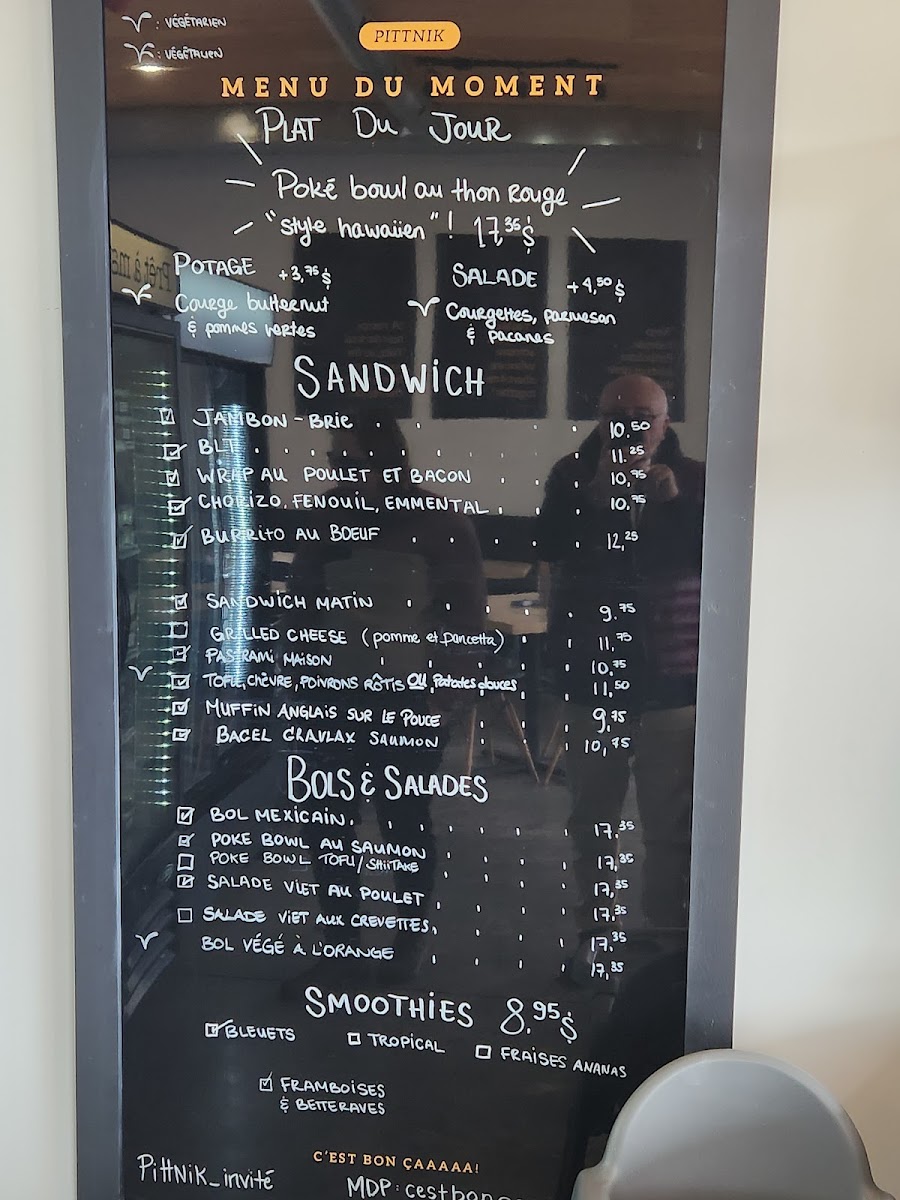 : VÉGÉTARIEN
: VÉGÉTALIEN
PITTNIK
MENU DU MOMENT
PLAT DU JOUR
Poké bowl au thon Rouge
"style hawaiien"! 17,35$
POTAGE +3,75$
Courge butternut
& pommes vertes
SALADE +4,50$
Courgettes, parmesan
& pacanes
SANDWICH
JAMBON-BRIE . . . . 10.50
BLT . . . . . . . . . 11.25
WRAP AU POULET ET BACON . . . 10,75
CHORIZO, FENOUIL, EMMENTAL . . . 10.75
BURRITO AU BOEUF . . . . . 12,25
SANDWICH MATIN . . . . . 9.75
GRILLED CHEESE (pomme et pancetta) . . 11,75
PASTRAMI MAISON . . . . . 10.75
TOFU, CHÈVRE, POIVRONS RÔTIS OU Patates douces . . 11,50
MUFFIN ANGLAIS SUR LE POUCE . . . 9,75
BAGEL GRAVLAX SAUMON . . . 10,75
BOLS & SALADES
BOL MEXICAIN. . . . . . 17.35
POKE BOWL AU SAUMON . . . . 17,35
POKE BOWL TOFU/SHIITAKE . . . . 17,35
SALADE VIET AU POULET . . . . 17.35
SALADE VIET AUX CREVETTES. . . . 17.35
BOL VÉGÉ À L'ORANGE . . . . 17,35
SMOOTHIES 8.95$
BLEUETS
TROPICAL
FRAISES ANANAS
FRAMBOISES
& BETTERAVES
C'EST BON ÇAAAAA!
PittNik_invité
MDP: cestbon